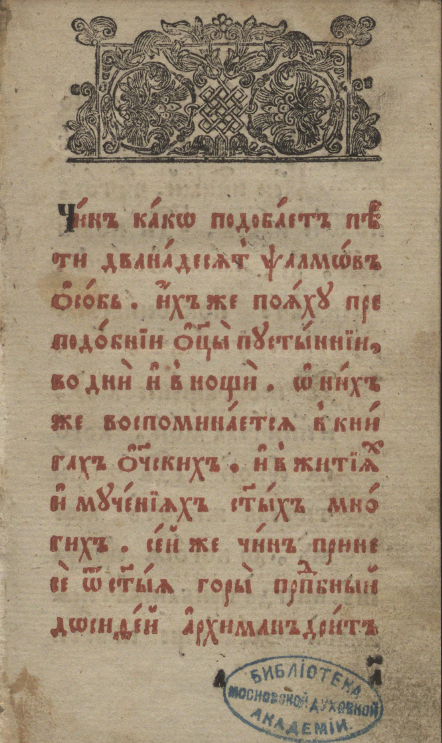 Чи́нъ ка́кѡ подоба́етъ пѣ́
ти двана́десѧт̾ ѱалмѡ́въ
ѻ҆со́бь . и҆́хъ же поѧ́ху пре
подо́бнїи ѻ҆ц҃ы̀ пусты́ннїи,
во днѝ и҆ в̾ нощѝ . ѡ҆ ни́хъ
же воспомина́етсѧ в̾ кни́
гахъ ѻ҆ч҃скихъ . и҆ в̾ житїѧ́х
и҆ муче́нїѧхъ ст҃ы́хъ мно́
гихъ . се́й же чи́нъ прине
сѐ ѿ ст҃ы́ѧ горы̀ прпⷣбный
дѡсиѳе́й а҆рхиманъдри́тъ
а҃
БИБЛІОТЕКА
МОСКОВСКОЙ ДУХОВНОЙ
АКАДЕМІИ.